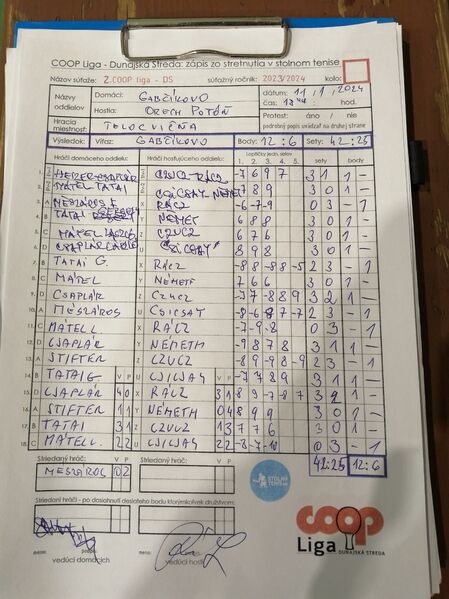 COOP Liga - Dunajská Streda: zápis zo stretnutia v stolnom tenise
Názov súťaže: 2.COOP liga - DS súťažný ročník: 2023/2024 kolo:
Názvy oddielov Domáci: GABČÍKOVO dátum: 11/1/2024
Hostia: ORECH POTÔŇ čas: hod.
Hracia miestnosť: TELOCVIČŇA Protest: áno / nie
podrobný popis uviesť na druhej strane
Výsledok: Víťaz: GABČÍKOVO Body: 12:6 Sety: 42:25
Hráči domáceho oddielu: Hráči hosťujúceho oddielu: sety body
1. 2. 3. 4. 5.
1. RÁCZ -7 6 9 7 3 1 1 -
2. TATAI NÉMET 7 8 9 3 0 1 -
3. A MÉSZÁROS X RÁCZ -6 -7 -9 0 3 - 1
4. B TATAI Y NÉMET 6 8 8 3 0 1 -
5. C MÁTEL Z CZUCZ 6 7 6 3 0 1 -
6. D CSAPLÁR U 8 9 8 3 0 1 -
7. B TATAI G. X RÁCZ -8 8 -8 8 -5 2 3 - 1
8. C MÁTEL Y NÉMETH 7 6 6 3 0 1 -
9. D CSAPLÁR Z CZUCZ -7 7 -8 8 9 3 2 1 -
10. A MÉSZÁROS U CSICSAY -8 -6 8 7 -7 2 3 - 1
11. C MÁTEL L. X RÁCZ -7 -9 -8 0 3 - 1
12. D CSAPLÁR Y NÉMETH -9 8 7 8 3 1 1 -
13. A STIFTER Z CZUCZ -8 9 -9 8 -9 2 3 - 1
14. B TATAI G. V P U CSICSAY V P -7 7 8 9 3 1 1 -
15. D CSAPLÁR 4 0 X RÁCZ 3 1 8 9 -7 8 -7 3 2 1 -
16. A STIFTER 1 1 Y NÉMETH 0 4 8 9 9 3 0 1 -
17. B TATAI 3 1 Z CZUCZ 1 3 7 7 6 3 0 1 -
18. C MÁTEL L. 2 2 U CSICSAY 2 2 -8 -7 -10 0 3 - 1
Striedaný hráč: V P Striedaný hráč: V P 42:25 12:6
MÉSZÁROS 0 2
STOLNÝ TENIS
Striedaní hráči - po dosiahnutí desiateho bodu ktorýmkoľvek družstvom:
coop
Liga DUNAJSKÁ STREDA
meno: podpis: meno:
vedúci domácich vedúci hostí